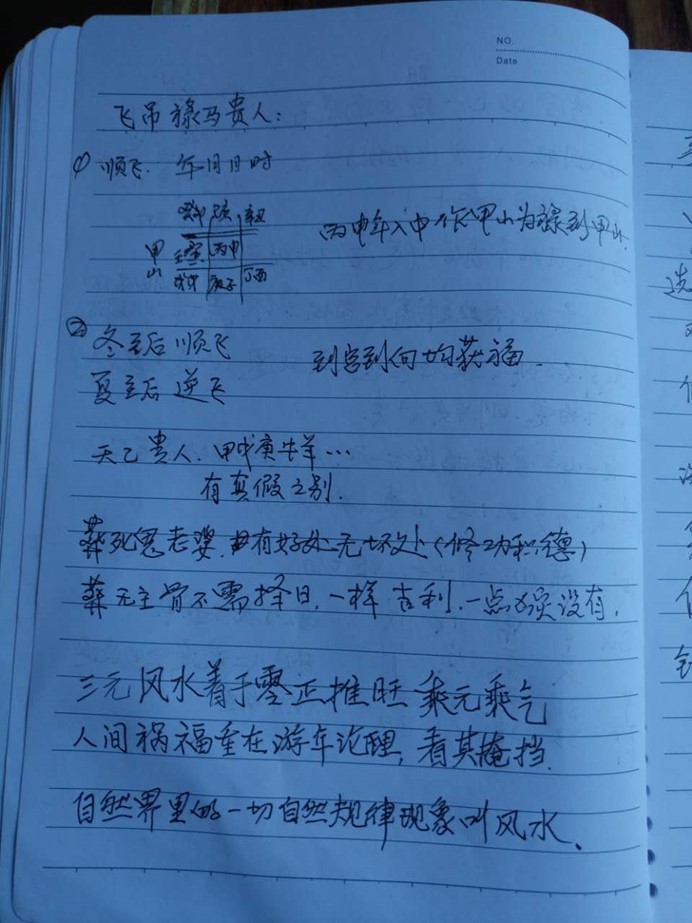 NO.
Date
飞吊禄马贵人:
① 顺飞. 年月日时
辛丑
甲山 丙申
丁酉
丙申年入中 甲山为禄到甲山.
② 冬至后 顺飞
到宫到向均获福.
夏至后 逆飞
天乙贵人. 甲戊庚牛羊…
有真假之别.
葬死鬼老婆. 有好处无坏处(修功积德)
葬无主骨不需择日. 一样吉利. 一点 没有.
三元风水着于零正推旺 乘元乘气
人间祸福重在游年 , 看其掩挡.
自然界里的一切自然规律现象叫风水.